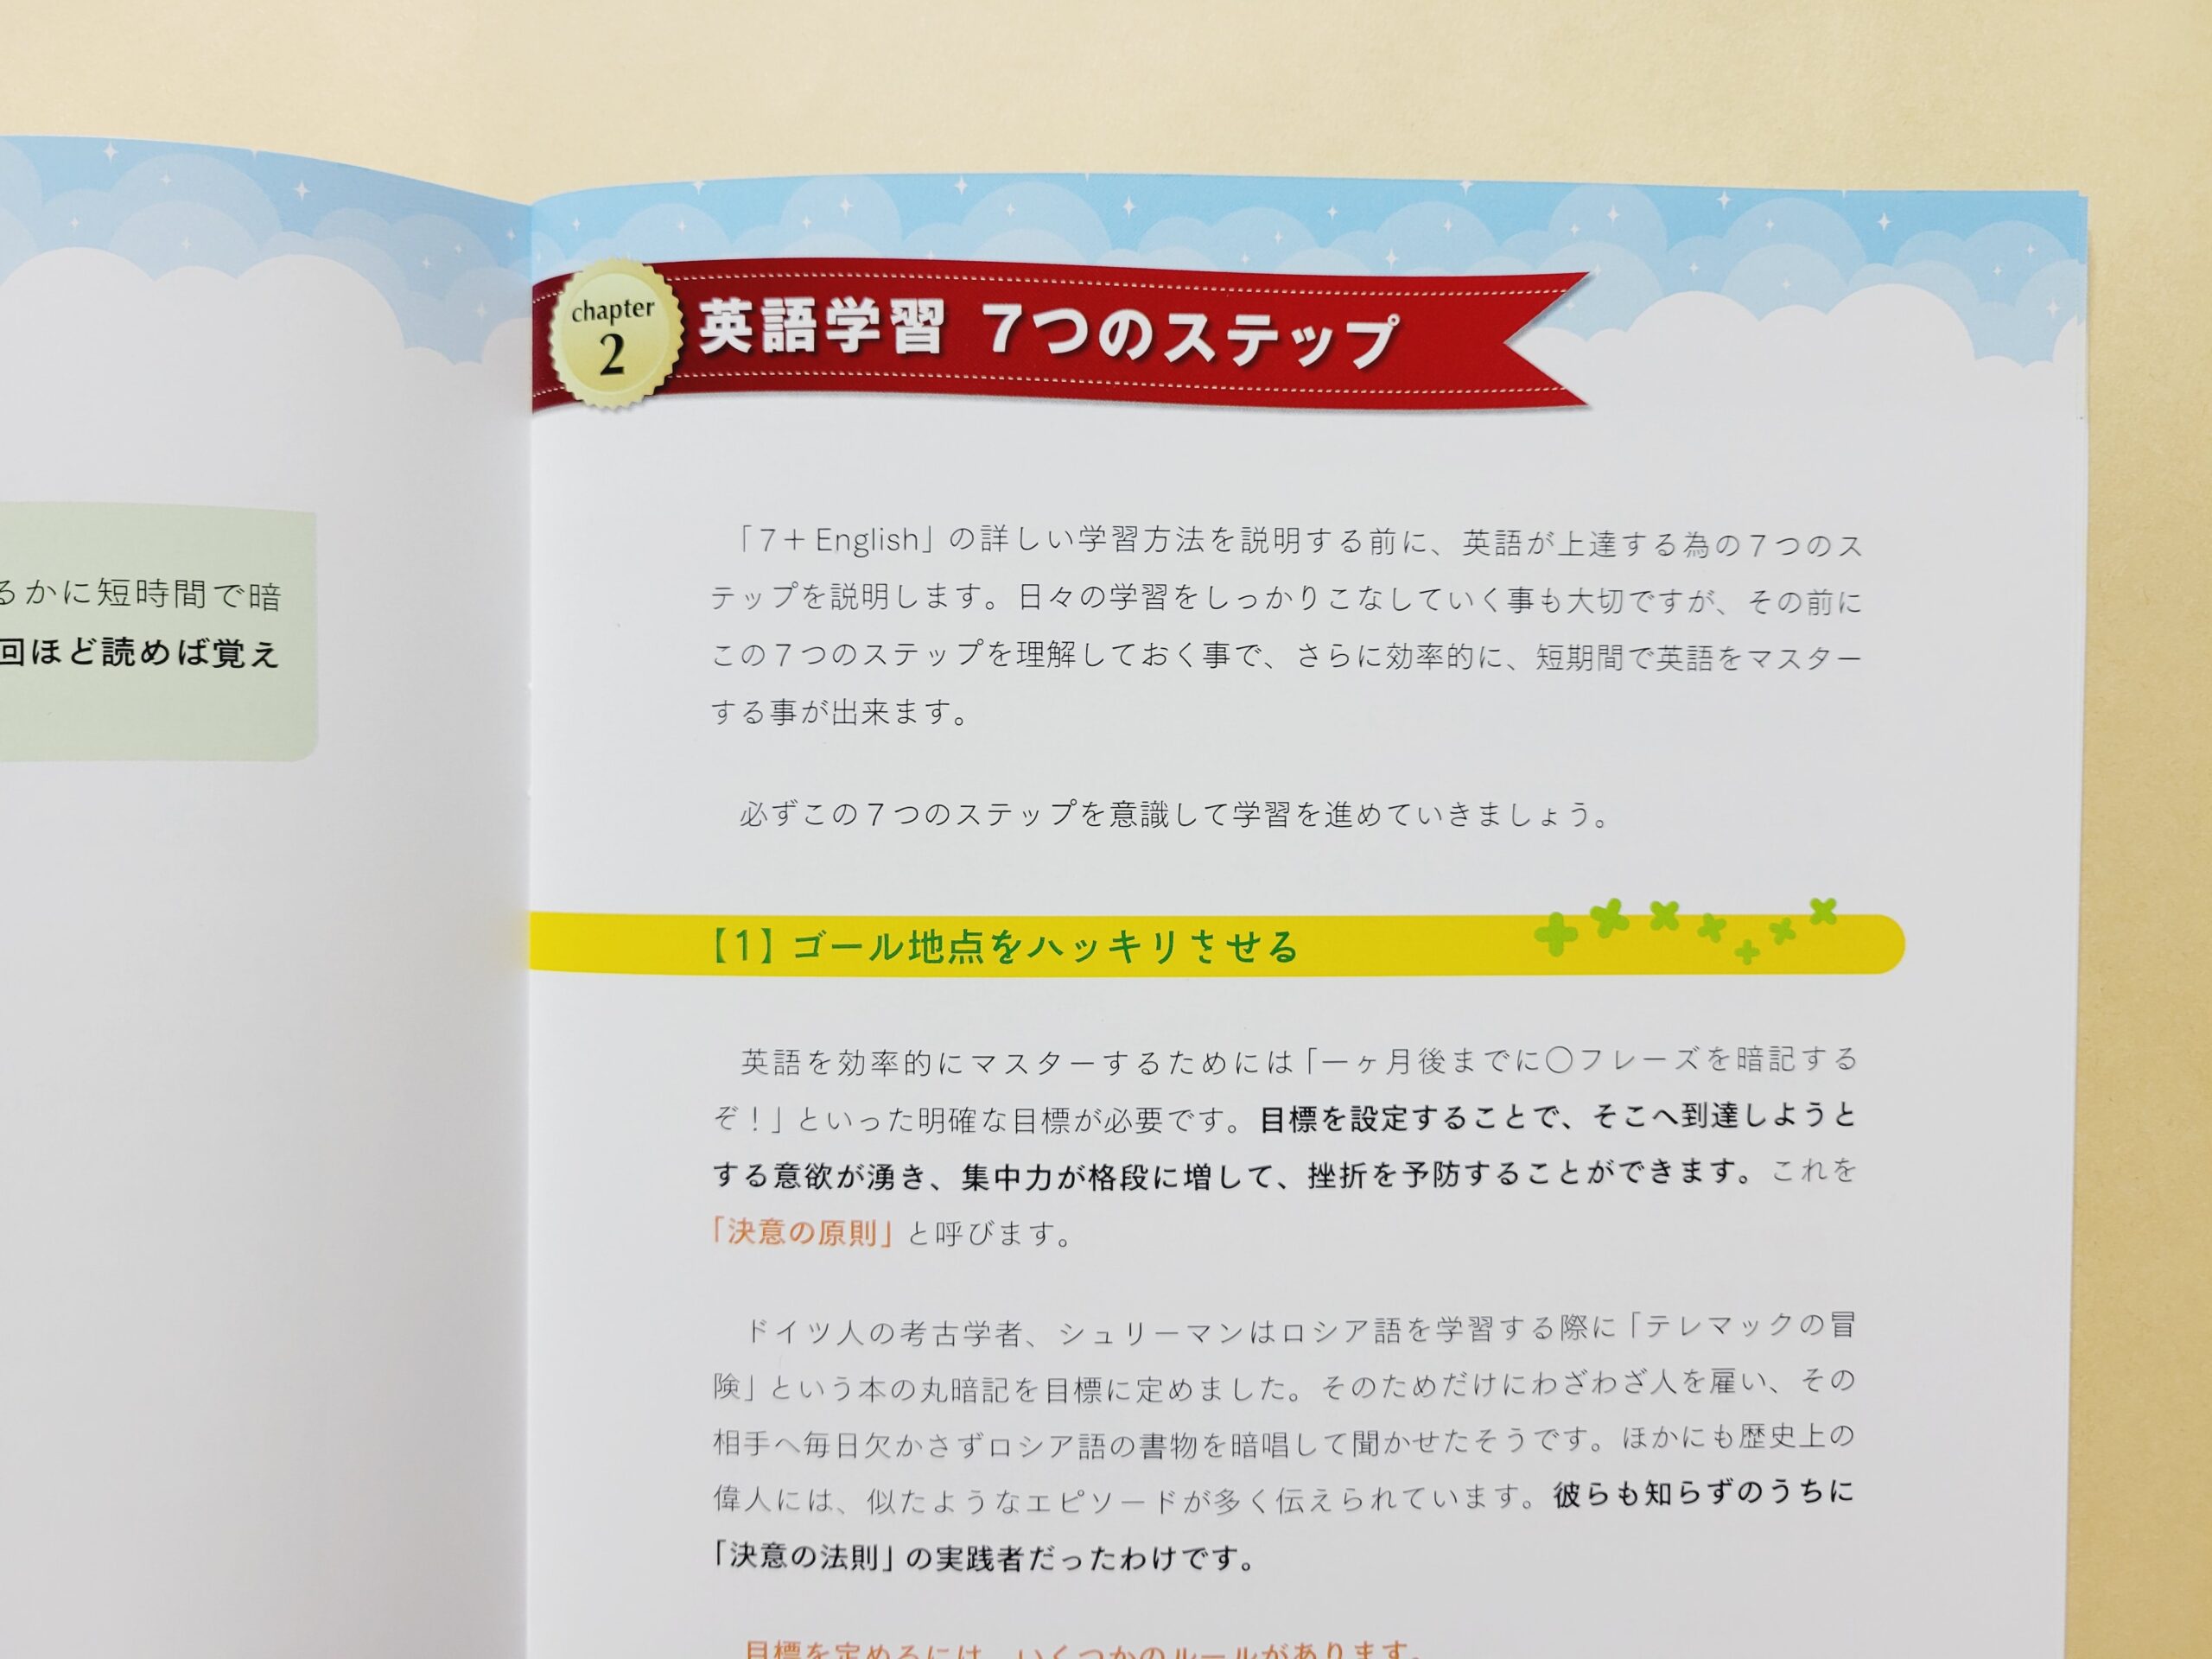 るかに短時間で暗
回ほど読めば覚え
chapter
2
英語学習 7つのステップ
「7＋English」の詳しい学習方法を説明する前に、英語が上達する為の７つのス
テップを説明します。日々の学習をしっかりこなしていく事も大切ですが、その前に
この７つのステップを理解しておく事で、さらに効率的に、短期間で英語をマスター
する事が出来ます。
必ずこの７つのステップを意識して学習を進めていきましょう。
【1】ゴール地点をハッキリさせる
英語を効率的にマスターするためには「一ヶ月後までに〇フレーズを暗記する
ぞ！」といった明確な目標が必要です。目標を設定することで、そこへ到達しようと
する意欲が湧き、集中力が格段に増して、挫折を予防することができます。これを
「決意の原則」と呼びます。
ドイツ人の考古学者、シュリーマンはロシア語を学習する際に「テレマックの冒
険」という本の丸暗記を目標に定めました。そのためだけにわざわざ人を雇い、その
相手へ毎日欠かさずロシア語の書物を暗唱して聞かせたそうです。ほかにも歴史上の
偉人には、似たようなエピソードが多く伝えられています。彼らも知らずのうちに
「決意の法則」の実践者だったわけです。
目標を定めるには、いくつかのルールがあります。